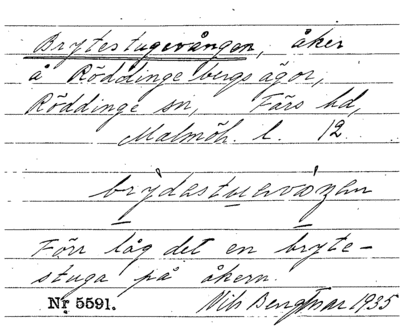 Brytestugevången, åker
å Röddinge bergs ägor,
Röddinge sn, Färs hd,
Malmöh. l. 12
brydastuavåŋan
Förr låg det en bryte-
stuga på åkern.
Nr 5591. Nils Bengtsar 1935